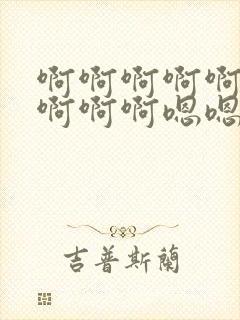 啊啊啊啊啊
啊啊啊嗯嗯
吉普斯蘭